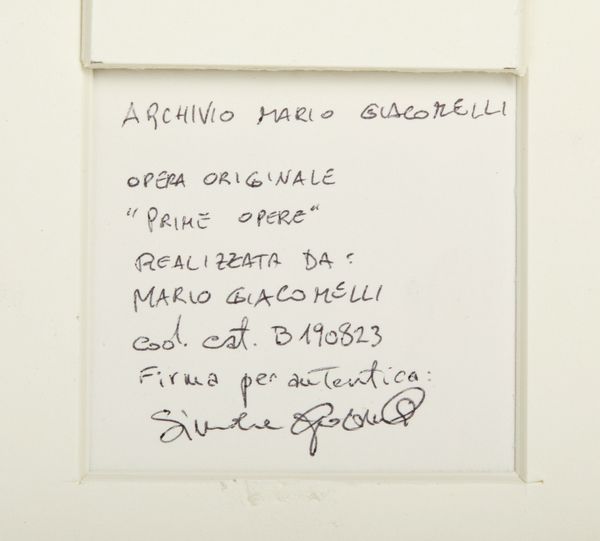 ARCHIVIO MARIO GIACOMELLI
OPERA ORIGINALE
"PRIME OPERE"
REALIZZATA DA:
MARIO GIACOMELLI
cod. cat. B190823
Firma per autentica:
Simone